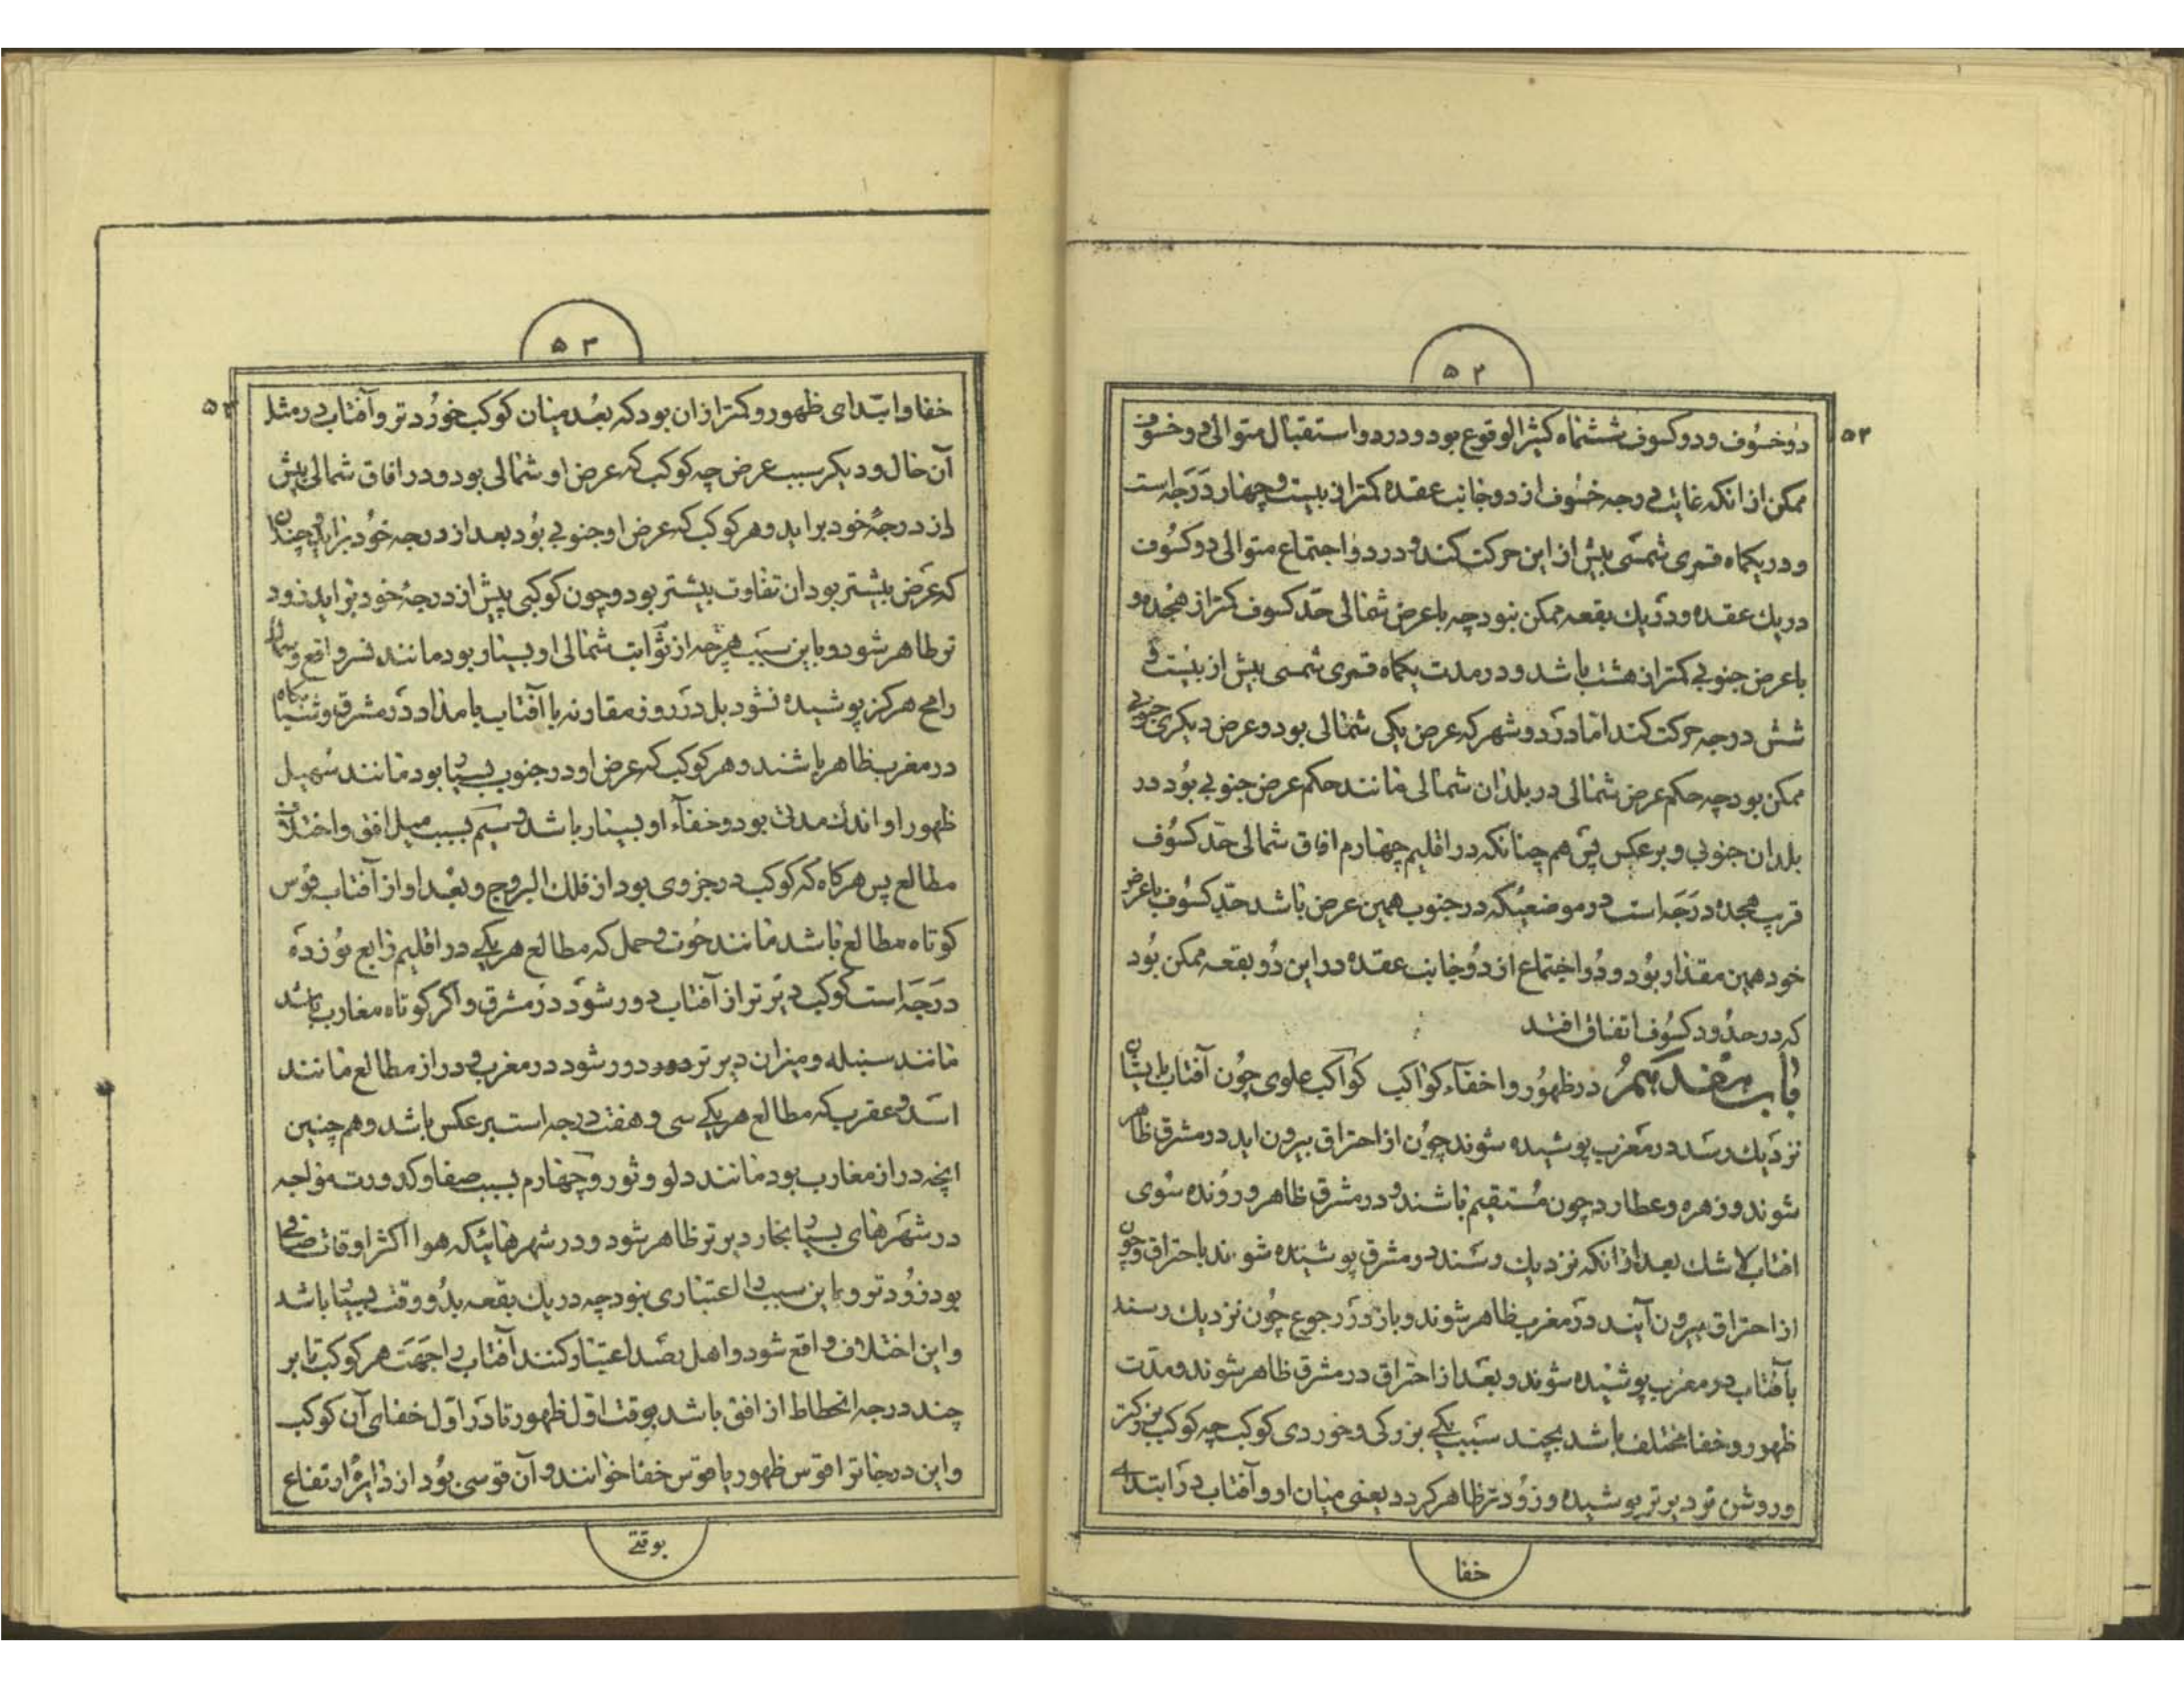 ۵۲
۵۲
دوخسوف ودو کسوف ششماه کثیر الوقوع بود ودر دو استقبال متوالی دو خسوف
ممکن از انکه غایت درجه خسوف از دو جانب عقده کمتر از بیست وچهار درجه است
ودر یکماه قمری شمسی بیش از این حرکت کند ودر دو اجتماع متوالی دو کسوف
در یك عقده ودر یك بقعه ممکن نبود چه با عرض شمالی حد کسوف کمتر از هجده و
با عرض جنوبی کمتر از هشت باشد ودر مدت یکماه قمری شمسی بیش از بیست و
شش درجه حرکت کند اما در دو شهر که عرض یکی شمالی بود وعرض دیکری جنوبی
ممکن بود چه حکم عرض شمالی در بلدان شمالی مانند حکم عرض جنوبی بود در
بلدان جنوبی وبر عکس پس هم چنانکه در اقلیم چهارم افاق شمالی حد کسوف
قریب هجده درجه است در موضعیکه در جنوب همین عرض باشد حد کسوف با عرض
خود همین مقدار بود ودو اجتماع از دو جانب عقده در این دو بقعه ممکن بود
که در حدود کسوف اتفاق افتد
باب هفدهم در ظهور واخفاء کواکب کواکب علوی چون آفتاب بایشان
نزدیك رسد در مغرب پوشیده شوند چون از احتراق بیرون اید در مشرق ظاهر
شوند وزهره وعطارد چون مستقیم باشند ودر مشرق ظاهر ورونده سوی
افتاب لاشك بعد از انکه نزدیك رسند در مشرق پوشیده شوند باحتراق وچون
از احتراق بیرون آیند در مغرب ظاهر شوند وباز در رجوع چون نزدیك رسند
بآفتاب در مغرب پوشیده شوند وبعد از احتراق در مشرق ظاهر شوند ومدت
ظهور وخفا مختلف باشد بچند سبب یکی بزرکی وخوردی کوکب چه کوکب بزرکتر
وروشن تر دیرتر پوشیده وزودتر ظاهر کردد یعنی میان او وآفتاب در ابتدای
خفا
۵۳
۵۳
خفا وابتدای ظهور وکمتر از ان بود که بعد میان کوکب خوردتر وآفتاب در مثل
آن حال ودیکر سبب عرض چه کوکب که عرض او شمالی بود ودر افاق شمالی پیش
از درجهٔ خود براید وهر کوکب که عرض او جنوبی بود بعد از درجه خود براید وچندان
که عرض بیشتر بود ان تفاوت بیشتر بود وچون کوکبی پیش از درجهٔ خود براید زود
تر ظاهر شود وباین سبب هرچه از ثوابت شمالی او بسیار بود مانند نسر واقع وسماك
رامح هرکز پوشیده نشود بل در روز مقارنه با آفتاب بامداد در مشرق وشبانکاه
در مغرب ظاهر باشند وهر کوکب که عرض او در جنوب بسیار بود مانند سهیل
ظهور او اندك مدتی بود وخفاء او بسیار باشد وسیم بسبب میل افق واختلاف
مطالع پس هرکاه که کوکب در جزوی بود از فلك البروج وبعد او از آفتاب قوس
کوتاه مطالع باشد مانند حوت وحمل که مطالع هر یکی در اقلیم رابع نوزده
درجه است کوکب دیرتر از آفتاب دور شود در مشرق واکر کوتاه مغارب باشد
مانند سنبله ومیزان دیرتر دور شود در مغرب ودراز مطالع مانند
اسد وعقرب که مطالع هر یکی سی وهفت درجه است بر عکس باشد وهم چنین
انچه دراز مغارب بود مانند دلو وثور وچهارم بسبب صفا وکدورت هوا چه
در شهرهای بسیار بخار دیرتر ظاهر شود ودر شهرهائیکه هوا اکثر اوقات صافی
بود زودتر وباین سبب را اعتباری نبود چه در یك بقعه بدو وقت بسیار باشد
واین اختلاف واقع شود واهل رصد اعتبار کنند آفتاب را جهت هر کوکب تا بر
چند درجه انحطاط از افق باشد بوقت اول ظهور تا در اول خفای آن کوکب
واین درجات را قوس ظهور یا قوس خفا خوانند وآن قوسی بود از دایرهٔ ارتفاع
بوقتی